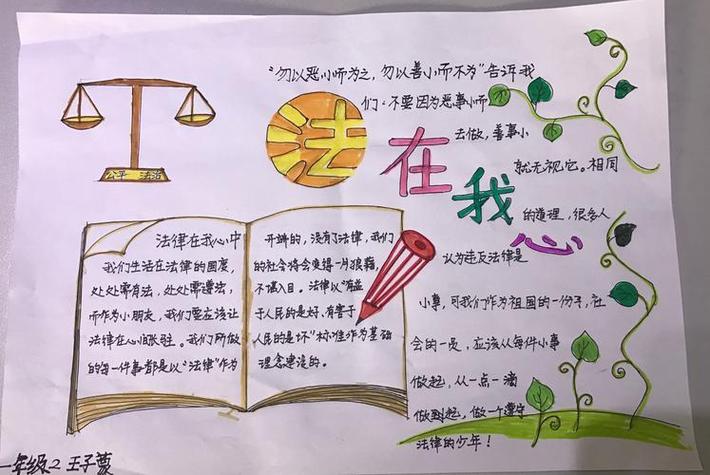 “勿以恶小而为之，勿以善小而不为”告诉我
们：不要因为恶事小而
去做，善事小
就无视它。相同
的道理，很多人
认为违反法律是
小事，可我们作为祖国的一份子，社
会的一员，应该从每件小事
做起，从一点一滴
做到起，做一个遵守
法律的少年！
法
在
我
心
公平 法治
法律在我心中
我们生活在法律的国度，
处处需有法，处处需遵法，
而作为小朋友，我们要应该让
法律在心间驻。我们所做
的每一件事都是以“法律”作为
开端的，没有了法律，我们
的社会将会变得一片狼藉，
不堪入目。法律以“有益
于人民的是好，有害于
人民的是坏”标准作为基础
理念建设的。
一年级.2 王子萱